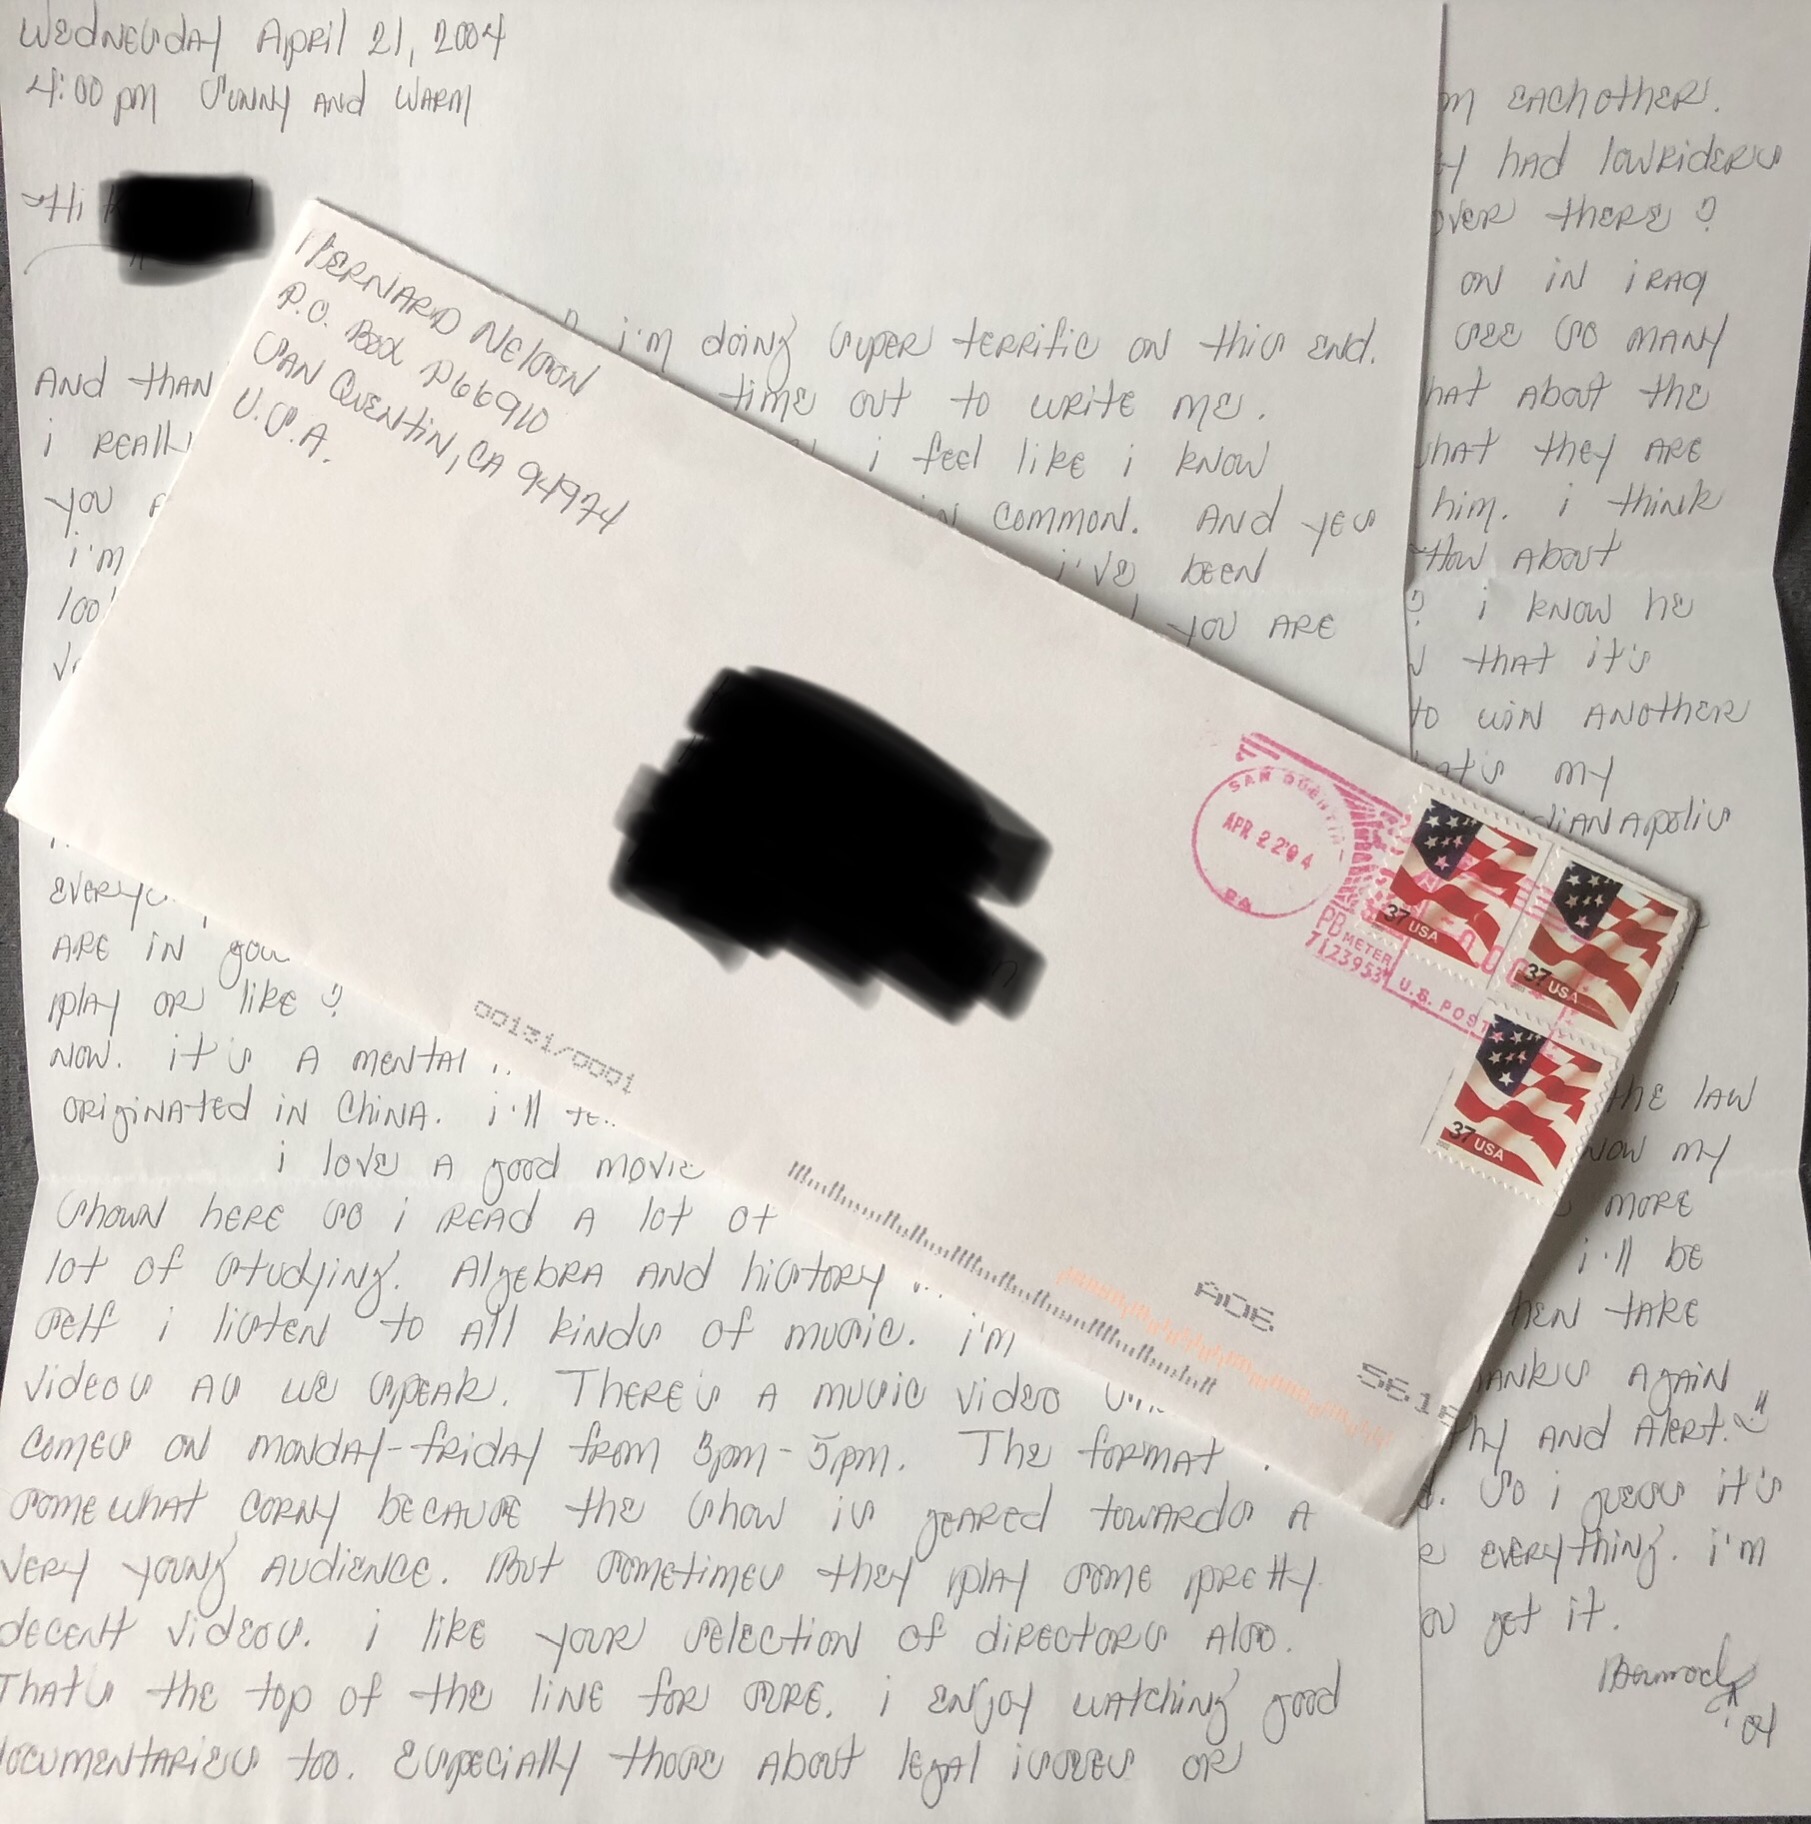 Wednesday April 21, 2004
4:00 pm Sunny and warm
Hi
i'm doing super terrific on this end.
And than
time out to write me.
i really
i feel like i know
you
in common. And yes
i'm
i've been
loo
you are
everyo
are in you
play or like?
now. it's a mental
originated in China. i'll te
i love a good movie
shown here so i read a lot of
lot of studying. Algebra and history
self i listen to all kinds of music. i'm
videos as we speak. There's a music video
comes on monday-friday from 3pm-5pm. The format
somewhat corny because the show is geared towards a
very young audience. But sometimes they play some pretty
decent videos. i like your selection of directors also.
That's the top of the line for sure. i enjoy watching good
documentaries too. Especially those about legal issues or
Bernard Nelson
P.O. Box P66910
San Quentin, CA 94974
U.S.A.
SAN QUENTIN
APR 22 '04
CA
PB METER
7123953
U.S. POST
37 USA
37 USA
37 USA
00131/0001
AOE
m eachother.
y had lowriders
over there?
on in iraq
see so many
hat about the
what they are
him. i think
How about
? i know he
that it's
to win another
hat's my
dianapolis
the law
now my
more
i'll be
hen take
hanks again
thy and alert.
So i guess it's
e everything. i'm
ou get it.
Bernard
04